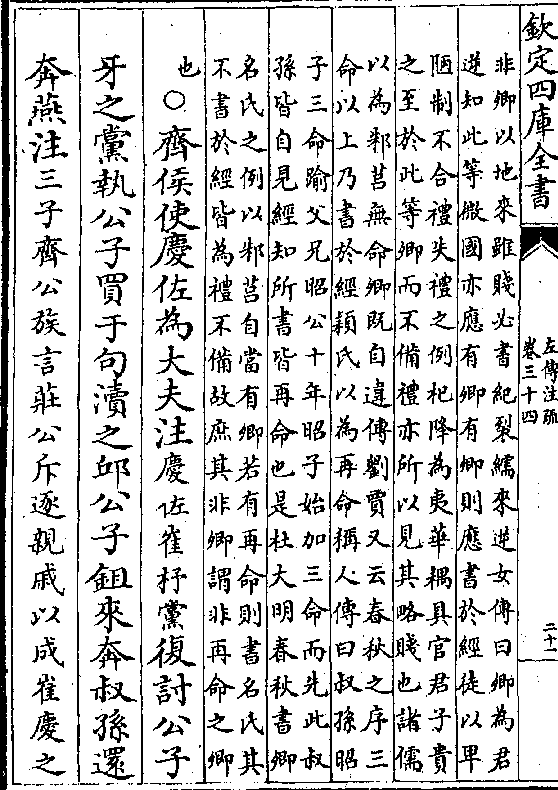 欽定四庫全書
左傳注疏
卷三十四
二十一
非卿以地來雖賤必書紀裂繻來逆女傳曰卿為君
逆知此等微國亦應有卿有卿則應書於經徒以卑
陋制不合禮失禮之例杞降為夷華耦具官君子貴
之至於此等卿而不備禮亦所以見其略賤也諸儒
以為邾莒無命卿既自違傳劉賈又云春秋之序三
命以上乃書於經穎氏以為再命稱人傳曰叔孫昭
子三命踰父兄昭公十年昭子始加三命而先此叔
孫皆自見經知所書皆再命也是杜大明春秋書卿
名氏之例以邾莒自當有卿若有再命則書名氏其
不書於經皆為禮不備故庶其非卿謂非再命之卿
也○齊侯使慶佐為大夫注慶佐崔杼黨復討公子
牙之黨執公子買于句瀆之邱公子鉏來奔叔孫還
奔燕注三子齊公族言莊公斥逐親戚以成崔慶之